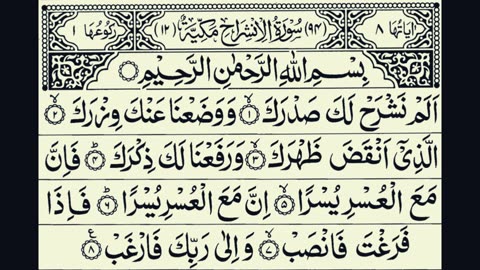 اٰيَاتُهَا ٨ (٩٤) سُوْرَةُ الْاِنْشِرَاحِ مَكِّيَّةٌ (١٢) رُكُوْعُهَا ١
بِسْمِ اللّٰهِ الرَّحْمٰنِ الرَّحِيْمِ
اَلَمْ نَشْرَحْ لَكَ صَدْرَكَ ۙ﴿١﴾ وَوَضَعْنَا عَنْكَ وِزْرَكَ ۙ﴿٢﴾
الَّذِيْۤ اَنْقَضَ ظَهْرَكَ ۙ﴿٣﴾ وَرَفَعْنَا لَكَ ذِكْرَكَ ؕ﴿٤﴾ فَاِنَّ
مَعَ الْعُسْرِ يُسْرًا ۙ﴿٥﴾ اِنَّ مَعَ الْعُسْرِ يُسْرًا ؕ﴿٦﴾ فَاِذَا
فَرَغْتَ فَانْصَبْ ۙ﴿٧﴾ وَاِلٰى رَبِّكَ فَارْغَبْ ۧ﴿٨﴾